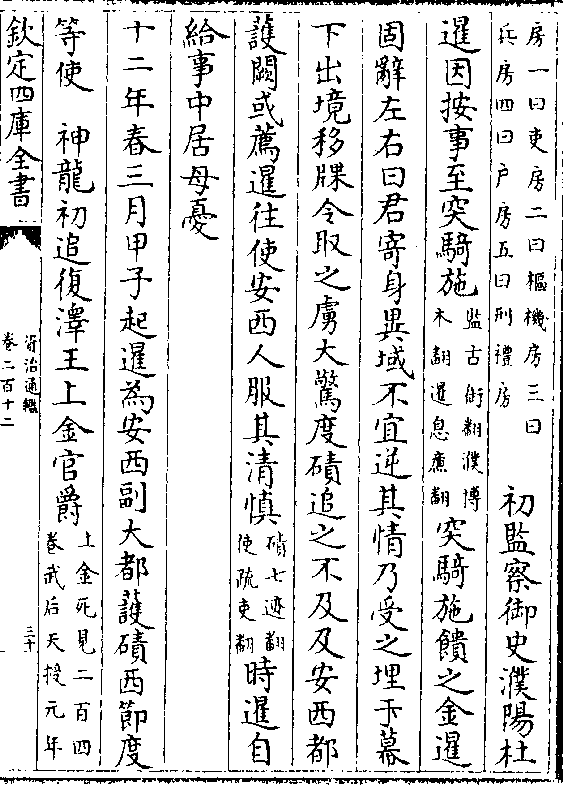 房一曰吏房二曰樞機房三曰
兵房四曰户房五曰刑禮房
初監察御史濮陽杜
暹因按事至突騎施
監古銜翻濮博
木翻暹息㢘翻
突騎施饋之金暹
固辭左右曰君寄身異域不宜逆其情乃受之埋于幕
下出境移牒令取之虜大驚度磧追之不及及安西都
護闕或薦暹往使安西人服其清慎
磧七迹翻
使疏吏翻
時暹自
給事中居母憂
十二年春三月甲子起暹為安西副大都護磧西節度
等使　神龍初追復澤王上金官爵
上金死見二百四
卷武后天授元年
欽定四庫全書
資治通鑑
卷二百十二
三十